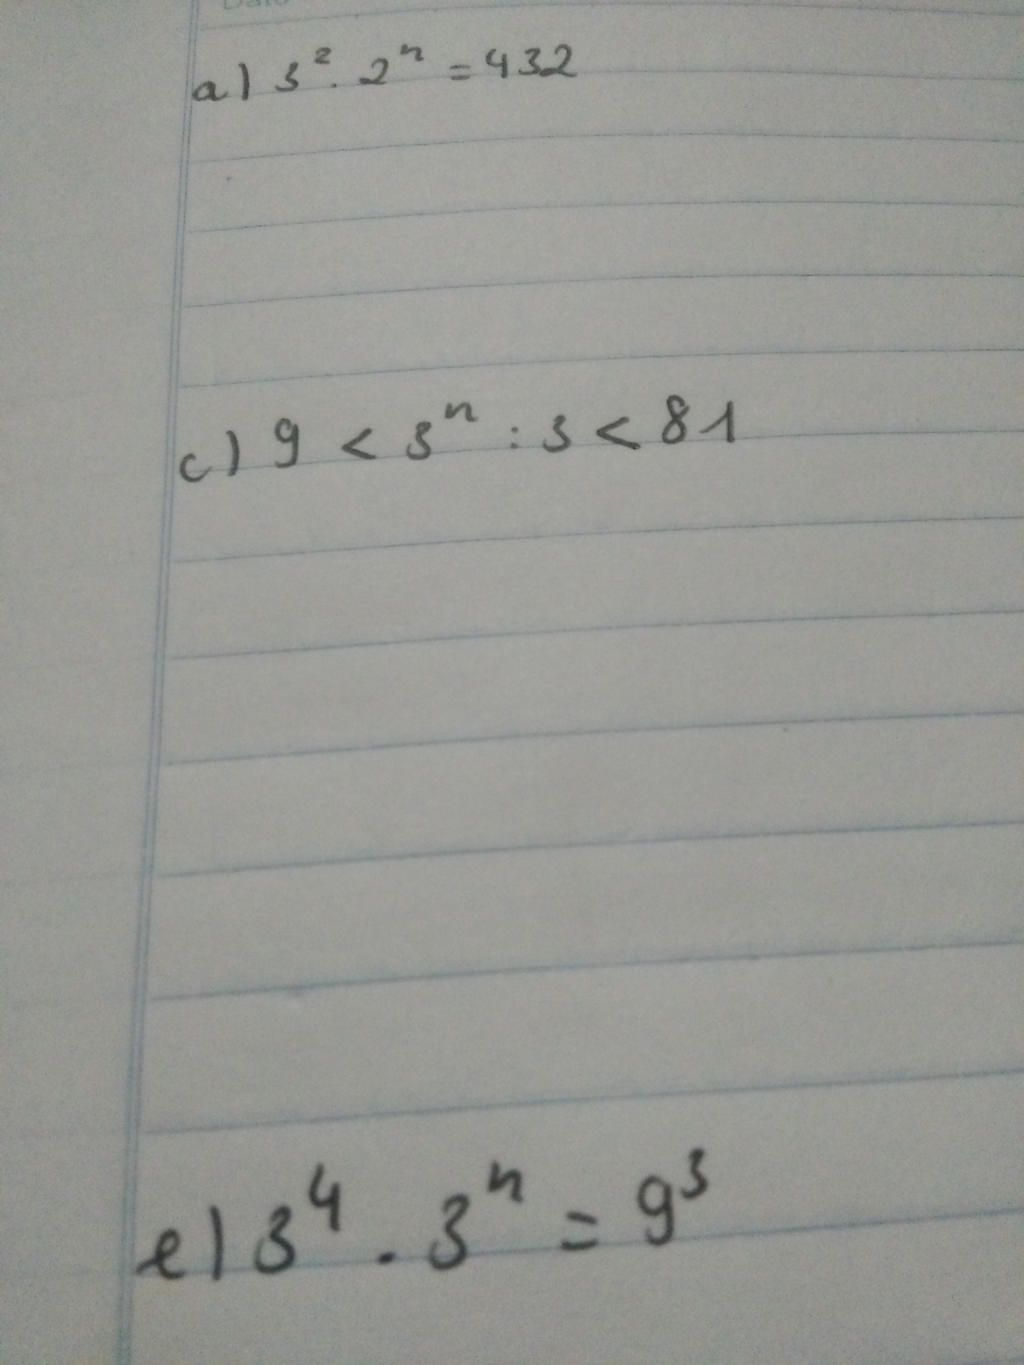 a) 3² . 2ⁿ = 432
c) 9 < 3ⁿ : 3 < 81
e) 3⁴ . 3ⁿ = 9³